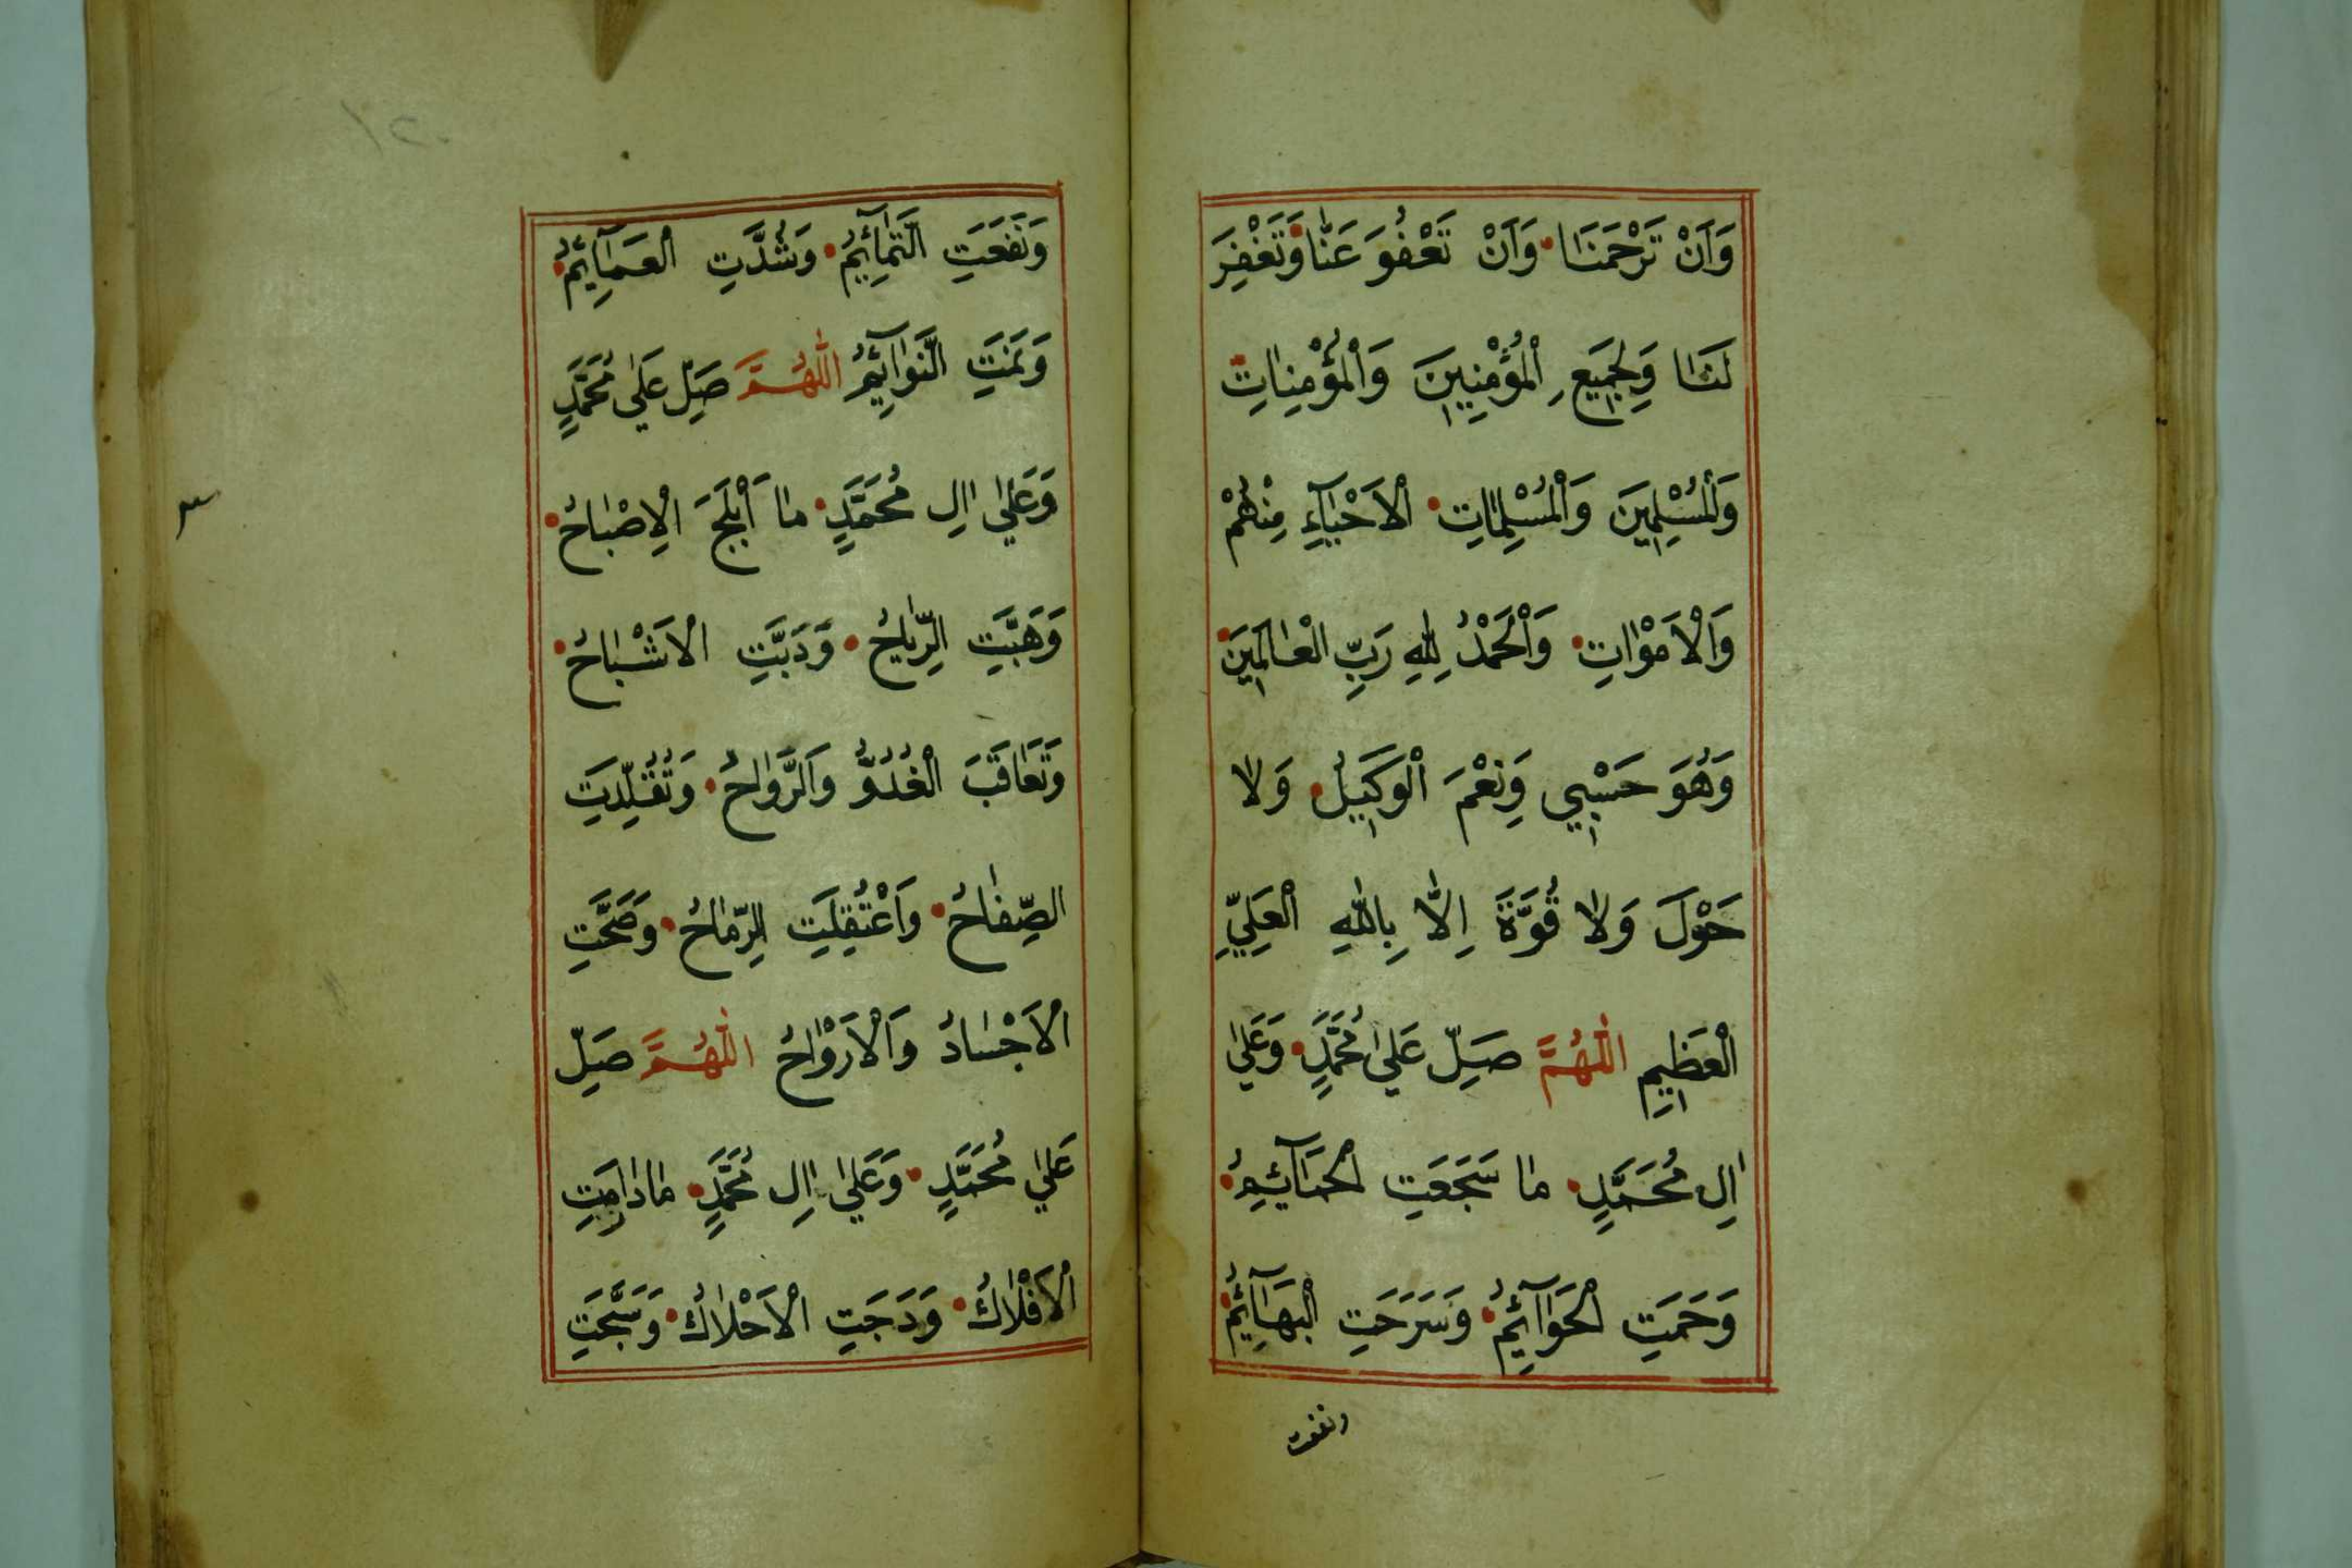 وَاَنْ تَرْحَمَنَا وَاَنْ تَعْفُوَ عَنَّا وَتَغْفِرَ
لَنَا وَلِجَمِيعِ الْمُؤْمِنِينَ وَالْمُؤْمِنَاتِ
وَالْمُسْلِمِينَ وَالْمُسْلِمَاتِ الْاَحْيَآءِ مِنْهُمْ
وَالْاَمْوَاتِ وَالْحَمْدُ لِلّٰهِ رَبِّ الْعَالَمِينَ
وَهُوَ حَسْبِي وَنِعْمَ الْوَكِيلُ وَلَا
حَوْلَ وَلَا قُوَّةَ اِلَّا بِاللّٰهِ الْعَلِيِّ
الْعَظِيمِ اَللّٰهُمَّ صَلِّ عَلَى مُحَمَّدٍ وَعَلَى
اٰلِ مُحَمَّدٍ مَا سَجَعَتِ الْحَمَآئِمُ
وَحَمَتِ الْحَوَآئِمُ وَسَرَحَتِ الْبَهَآئِمُ
ونفعت
وَنَفَعَتِ التَّمَآئِمُ وَشُدَّتِ الْعَمَآئِمُ
وَنَمَتِ النَّوَآئِمُ اَللّٰهُمَّ صَلِّ عَلَى مُحَمَّدٍ
وَعَلَى اٰلِ مُحَمَّدٍ مَا اَبْلَجَ الْاِصْبَاحُ
وَهَبَّتِ الرِّيَاحُ وَدَبَّتِ الْاَشْبَاحُ
وَتَعَاقَبَ الْغُدُوُّ وَالرَّوَاحُ وَتُقُلِّدَتِ
الصِّفَاحُ وَاعْتُقِلَتِ الرِّمَاحُ وَصَحَّتِ
الْاَجْسَادُ وَالْاَرْوَاحُ اَللّٰهُمَّ صَلِّ
عَلَى مُحَمَّدٍ وَعَلَى اٰلِ مُحَمَّدٍ مَا دَامَتِ
الْاَفْلَاكُ وَدَجَتِ الْاَحْلَاكُ وَسَبَّحَتِ